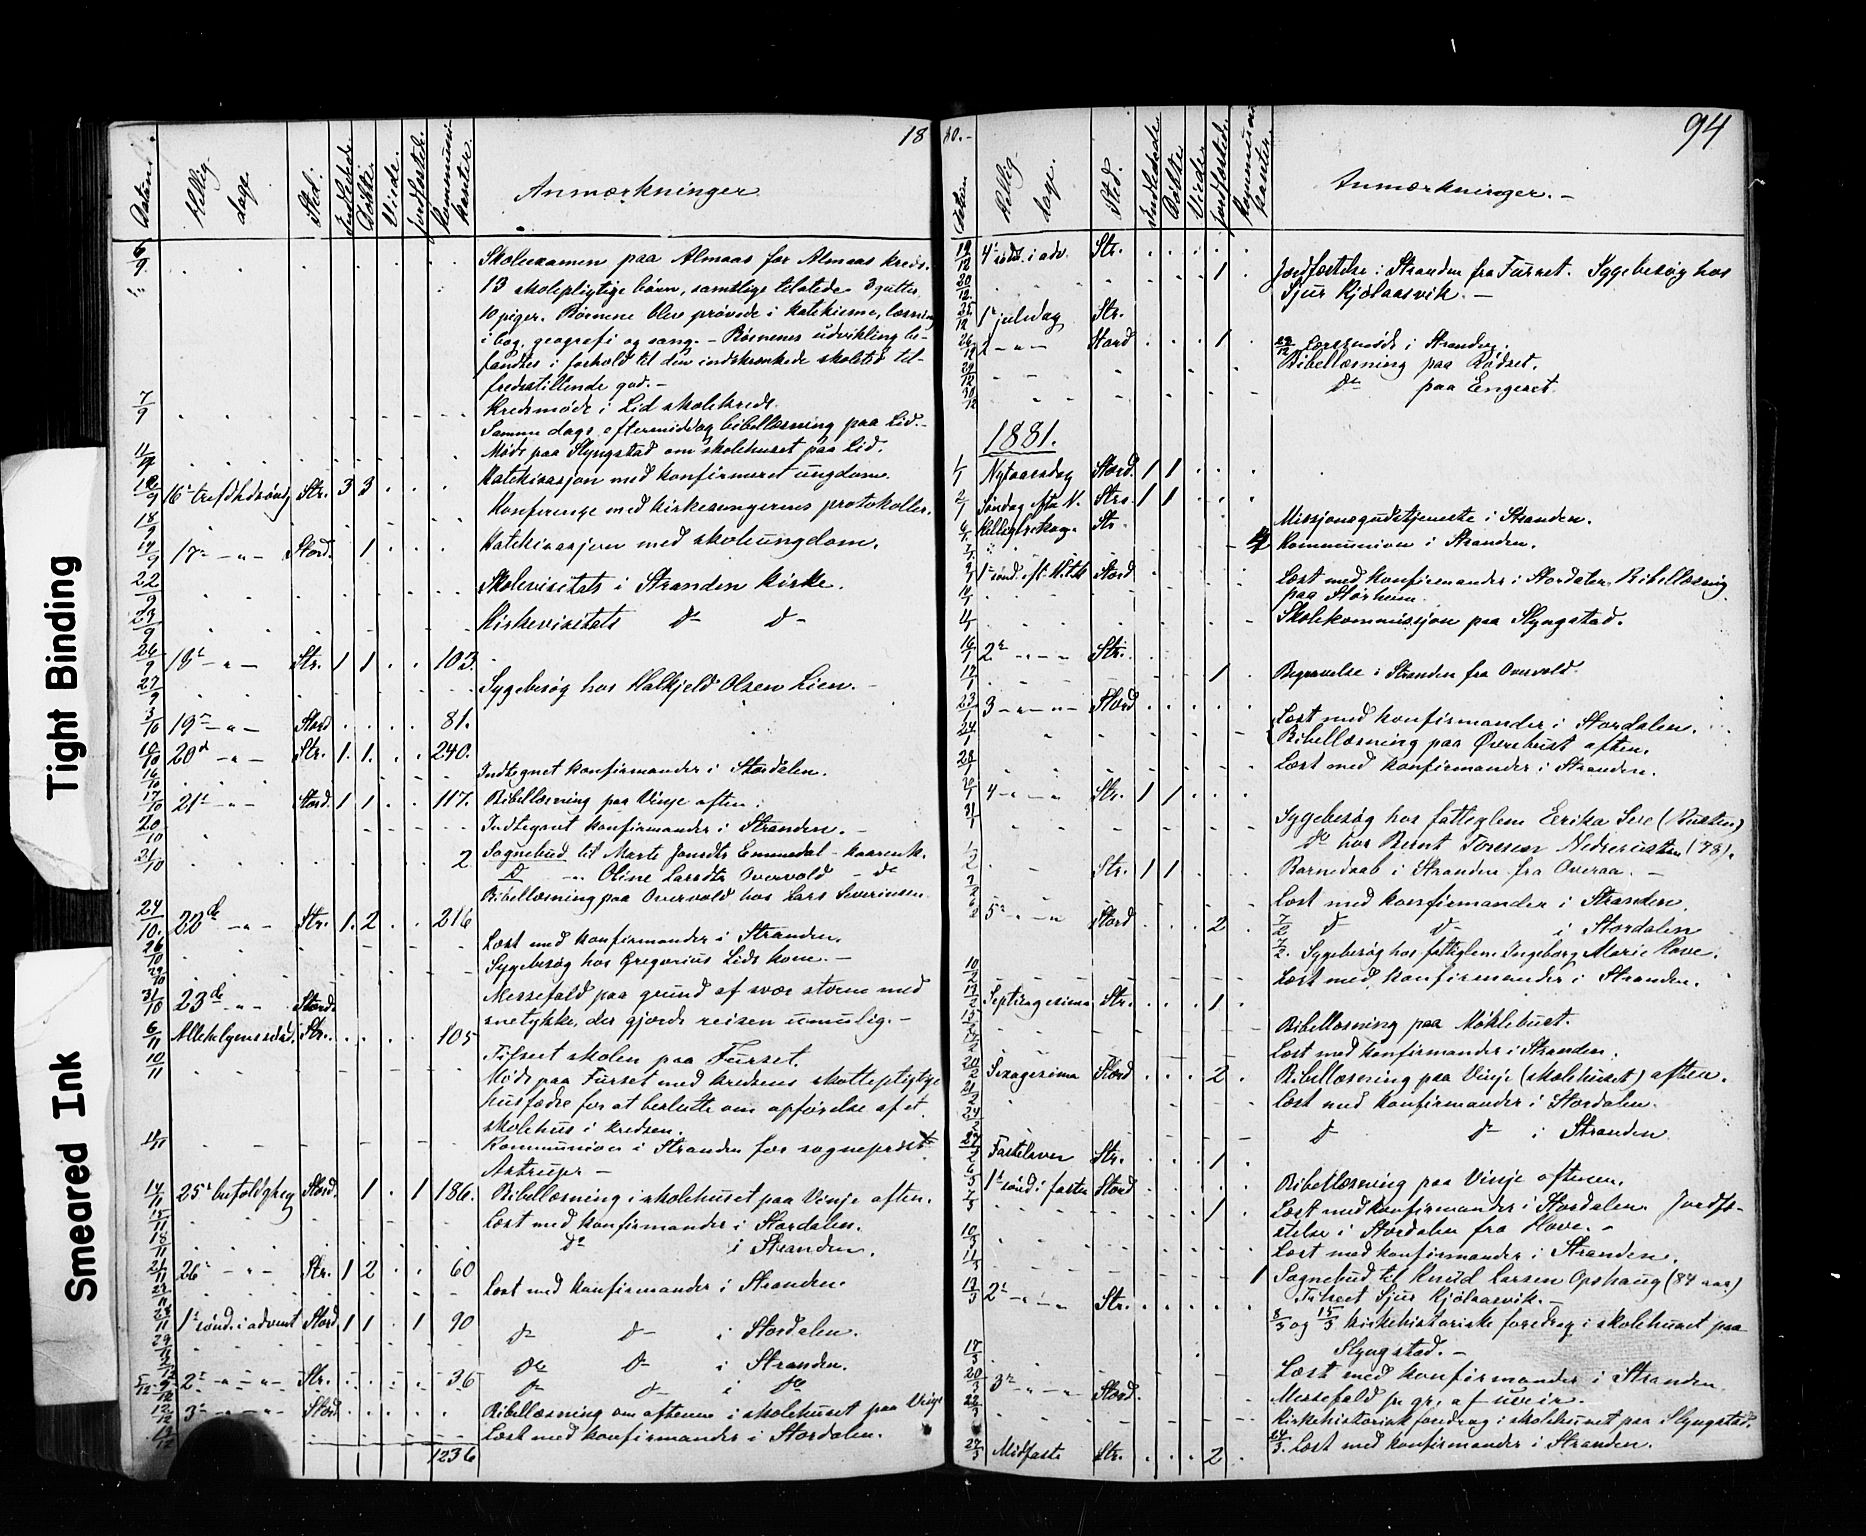 Tight Binding
Smeared Ink
18
Datum.
Hellig dage
Sted.
Indledede
Døbte.
Viede.
Jordfæstede.
Kommunikanter.
Anmærkninger
6/9 Skoleexamen paa Almaas for Almaas kreds.
13 skolepligtige børn, samtlige tilstede 3 gutter
10 piger. Børnene blev prøvede i katekisme, læsning
i bog, geografi og sang. – Børnenes udvikling be-
fandtes i forhold til den indskrænkede skoletid til-
fredsstillende god. –
7/9 Kredsmøde i Lid skolekreds.
Samme dags eftermiddag bibellæsning paa Lid. –
Møde paa Slyngstad om skolehuset paa Lid.
16de trefdhdsøndg Str. 3 3 Katekisasjon med konfirmeret ungdom.
18/9 Konferense med kirkesangerens protokoller.
19/9 17de – " – Stord. 1 Katekisasjon med skoleungdom.
22/9 Skolevisitats i Stranden kirke.
23/9 Kirkevisitats do do
26/9 18de – " – Str. 1 1 103.
27/9 Sygebesøg hos Halkjeld Olsen Lien. –
3/10 19de – " – Stord 81.
10/10 20de – " – Str. 1. 1. 240.
16/10 Indtegnet konfirmander i Stordalen.
17/10 21de – " – Stord. 1 1 117. Bibellæsning paa Vinje aften.
20/10 Indtegnet konfirmander i Stranden. –
21/10 2 Sognebud til Marte Emmedal – Kaarenk.
do – " Oline Larsdtr Overvold – do
Bibellæsning paa Overvold hos Lars Severinsen.
24/10. 22de – " – Str. 1. 2 216
26/10 Læst med konfirmander i Stranden.
29/10 Sygebesøg hos Gregorius Lids kone. –
31/10 23de – " – Stord. Messefald paa grund af svær storm med
snetykke, der gjorde reisen umulig. –
6/11 Str. 105
10/11 Tilseet skolen paa Furset.
Møde paa Furset med kredsens skattepligtige
husfædre for at beslutte om opførelse af et
skolehus i kredsen.
11/11 Kommunion i Stranden for sogneprest
Astrup. –
14/11 25de trefoldghtg Stord. 1 1 186. Bibellæsning i skolehuset paa Vinje aften.
15/11 Læst med konfirmander i Stordalen.
18/11 do i Stranden.
21/11 26de – " – Str. 1 2 60
Læst med konfirmander i Stranden.
28/11 1de sønd. i advent Stord 1 1 1 90
29/11 do do i Stordalen.
do do i Stranden.
5/12 2de – " – " – Str. 36
do do i do
12/12 3de – " – " – Stord Bibellæsning om aftenen i skolehuset paa Vinje
13/12 Læst med konfirmander i Stordalen.
1236
80. –
94
Datum
Hellig dage.
Sted.
Indledede
Døbte
Viede
Jordfæstede
Kommunikanter.
Anmærkninger. –
19/12 4de sønd. i adv. Str.
20/12. 1 Jordfæstelse i Stranden fra Furset. Sygebesøg hos
Sjur Kjølaasvik. –
25/12 1de juledag Str.
26/12 2 – " – Stord 1 i Stranden.
29/12 Bibellæsning paa Rødset.
30/12 do paa Engeset.
1881.
1/1 Nytaarsdag Stord. 1 1
2/1 Søndag efter N. Str. 1 1
6/1 Str. Missjonsgudstjeneste i Stranden.
7/1 Kommunion i Stranden.
9/1 Stord
10/1 Læst med konfirmander i Stordalen. Bibellæsning
paa Storheim.
Skolekommisjon paa Slyngstad.
16/1 2de – " – " – Str.
17/1 1 Begravelse i Stranden fra Overvold.
23/1 3 – " – " – Stord
24/1 Læst med konfirmander i Stordalen.
Bibellæsning paa Øvrebust aften.
28/1 Læst med konfirmander i Stranden.
30/1 4 – " – " Str. 1 1
31/1 Sygebesøg hos fattiglem Erika
do hos Bernt
1/2 Str. 1 1 Barnedaab i Stranden fra Overaa. –
Læst med konfirmander i Stranden.
6/2 5de – " – " Stord 2 7/2 do do i Stordalen
7/2. Sygebesøg hos fattiglem Ingeborg Marie Hove.
10/2 Læst med konfirmander i Stranden.
13/2 Septuagesima Str. 1.
Bibellæsning paa Møklebust.
17/2 Læst med konfirmander i Stranden.
20/2 Sexagesima Stord 2 Bibellæsning paa Vinje (skolehuset) aften.
21/2 Læst med konfirmander i Stordalen.
24/2 do do i Stranden
27/2 Fastelaven Str. 1
6/3 1de sønd. i fasten Stord Bibellæsning paa Vinje aftenen.
7/3 1 Læst med konfirmander i Stordalen. Jordfæ-
stelse i Stordalen fra Hove. –
10/3 Læst med konfirmander i Stranden.
11/3 1 Sognebud til Knud Larsen Opshaug (84 aar)
13/3 2de – " – " Str. Tilseet Sjur Kjølaasvik. –
8/3 og 15/3 kirkehistoriske foredrag i skolehuset paa
Slyngstad. –
17/3 Læst med konfirmander i Stranden.
20/3 3de – " – " Stord. Messefald pr. gr. af uveir.
22/3 Kirkehistorisk foredrag i skolehuset paa Slyngstad.
27/3 Midfaste Str. 2 24/3. Læst med konfirmander i Stranden.